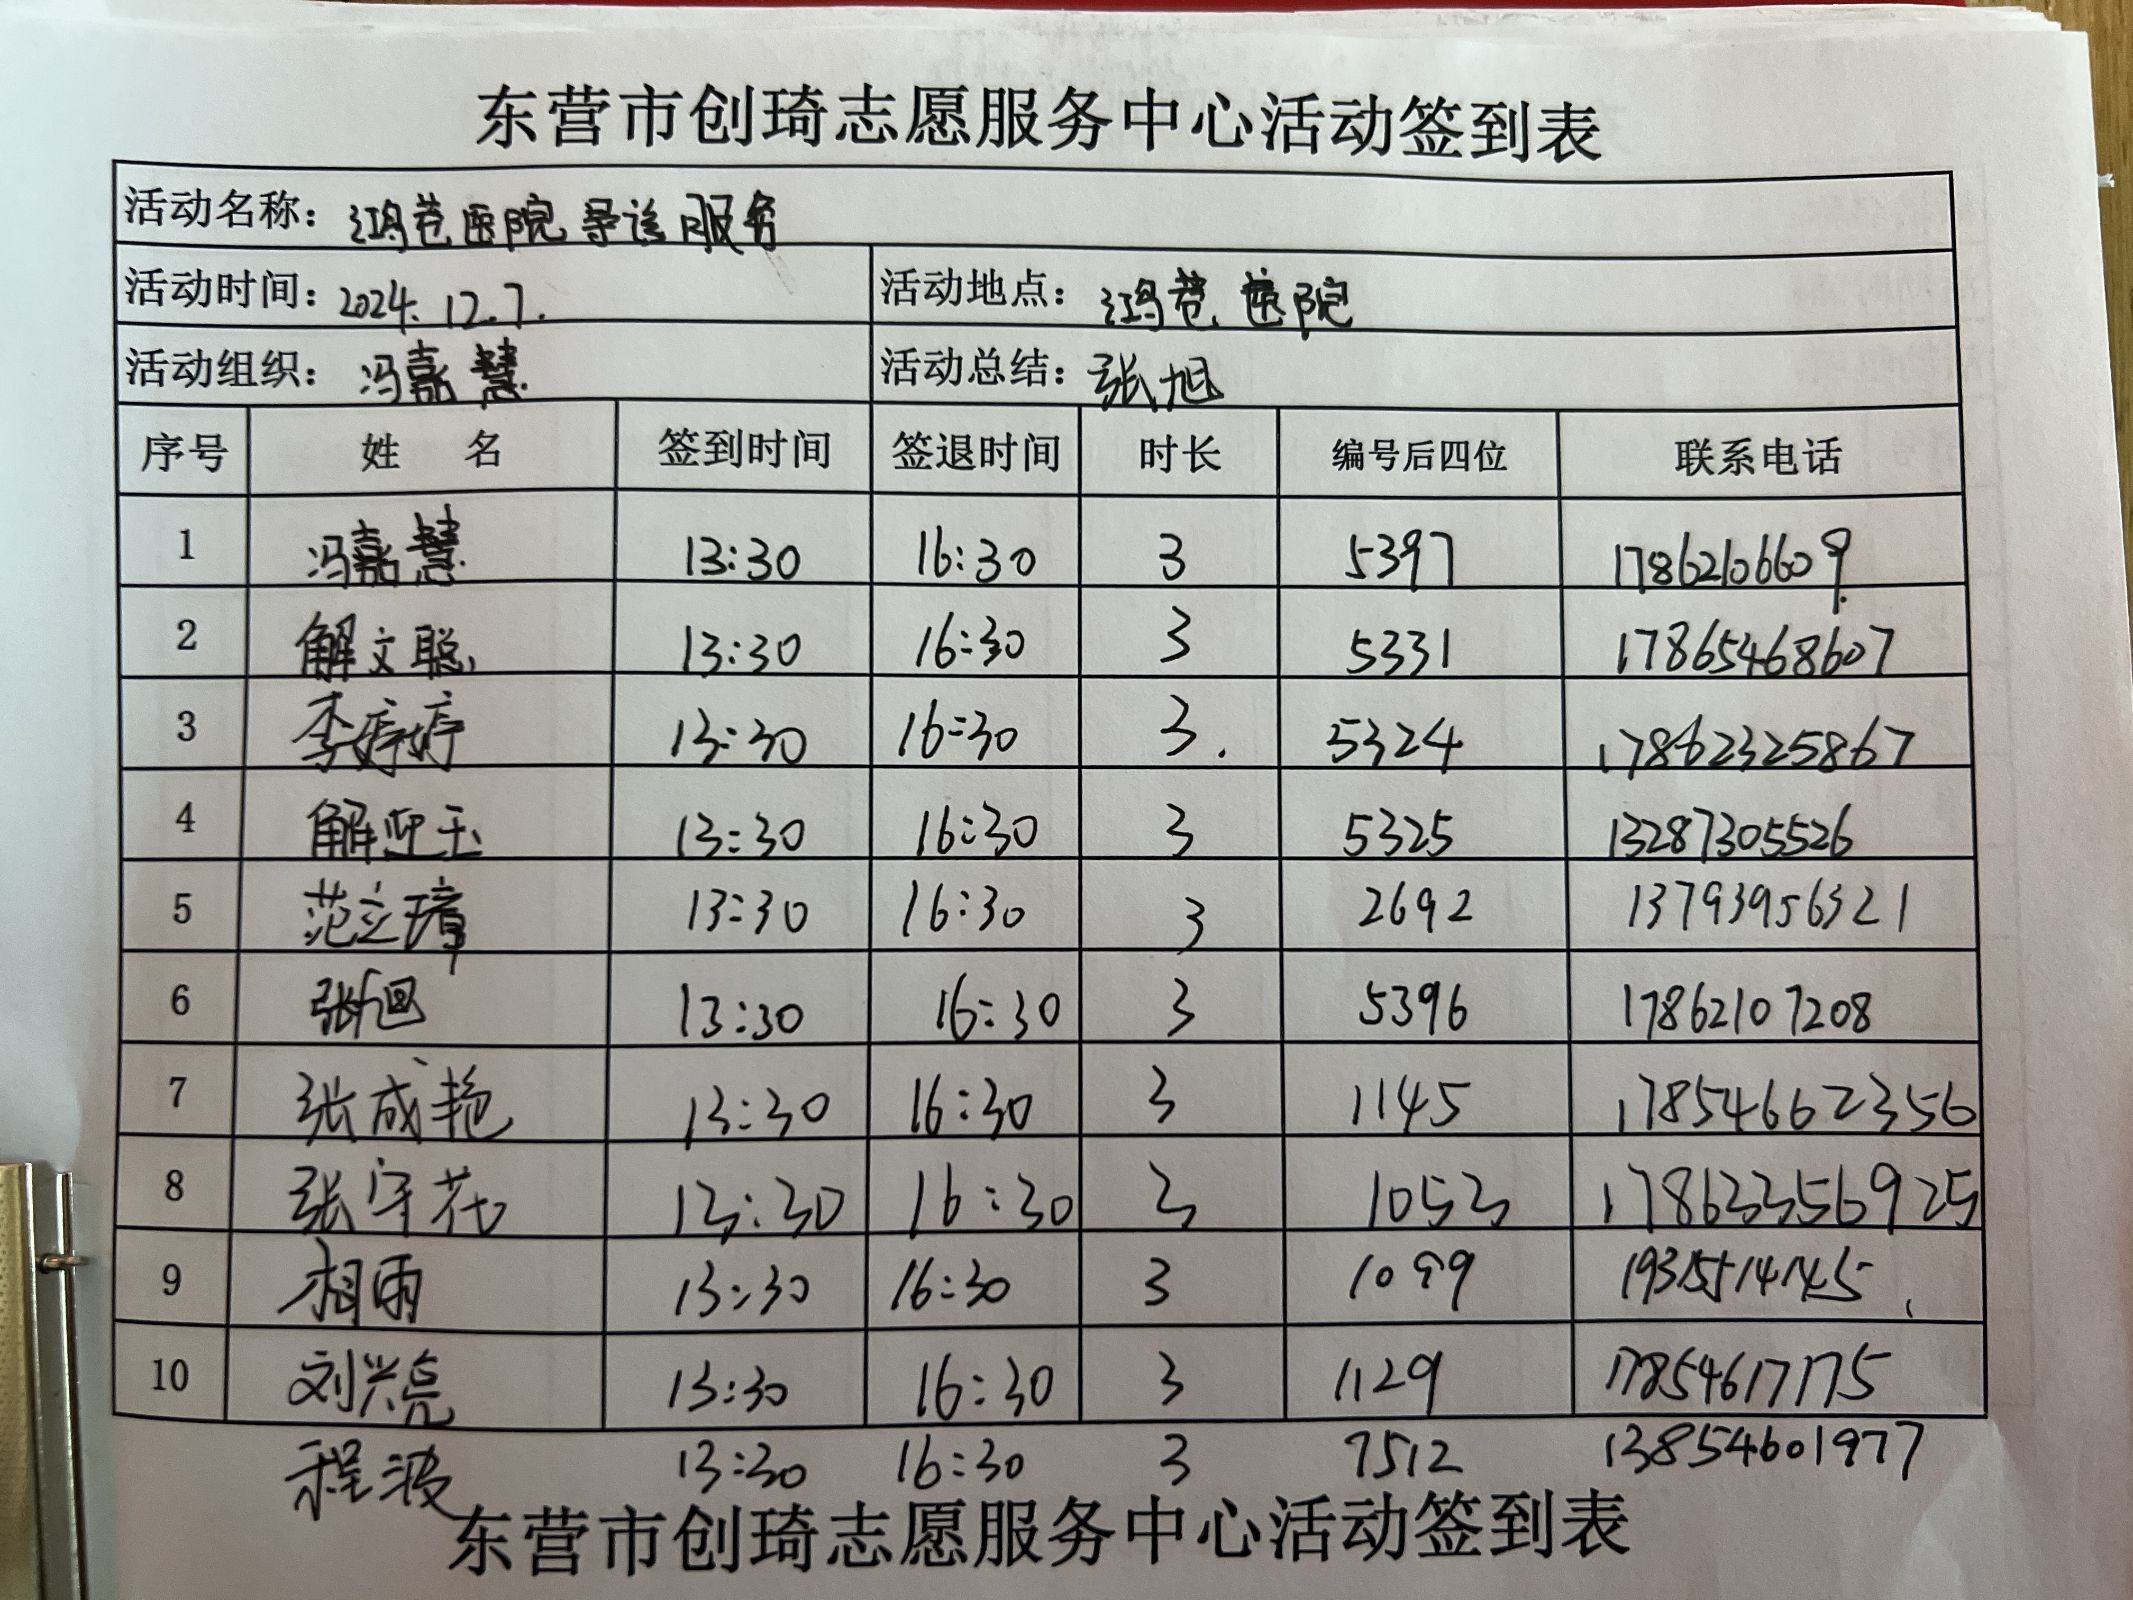 东营市创琦志愿服务中心活动签到表
活动名称：鸿苍医院导诊服务
活动时间：2024.12.7. 活动地点：鸿苍医院
活动组织：冯嘉慧 活动总结：张旭
序号 姓 名 签到时间 签退时间 时长 编号后四位 联系电话
1 冯嘉慧 13:30 16:30 3 5397 17862106609
2 解文聪 13:30 16:30 3 5331 17865468607
3 李婷婷 13:30 16:30 3. 5324 17862325867
4 解迎玉 13:30 16:30 3 5325 13287305526
5 范立璋 13:30 16:30 3 2692 13793956321
6 张旭 13:30 16:30 3 5396 17862107208
7 张成艳 13:30 16:30 3 1145 17854662356
8 张守花 13:30 16:30 3 1053 17863356925
9 相雨 13:30 16:30 3 1099 19315514145
10 刘兴亮 13:30 16:30 3 1129 17854617175
程波 13:30 16:30 3 7512 13854601977
东营市创琦志愿服务中心活动签到表